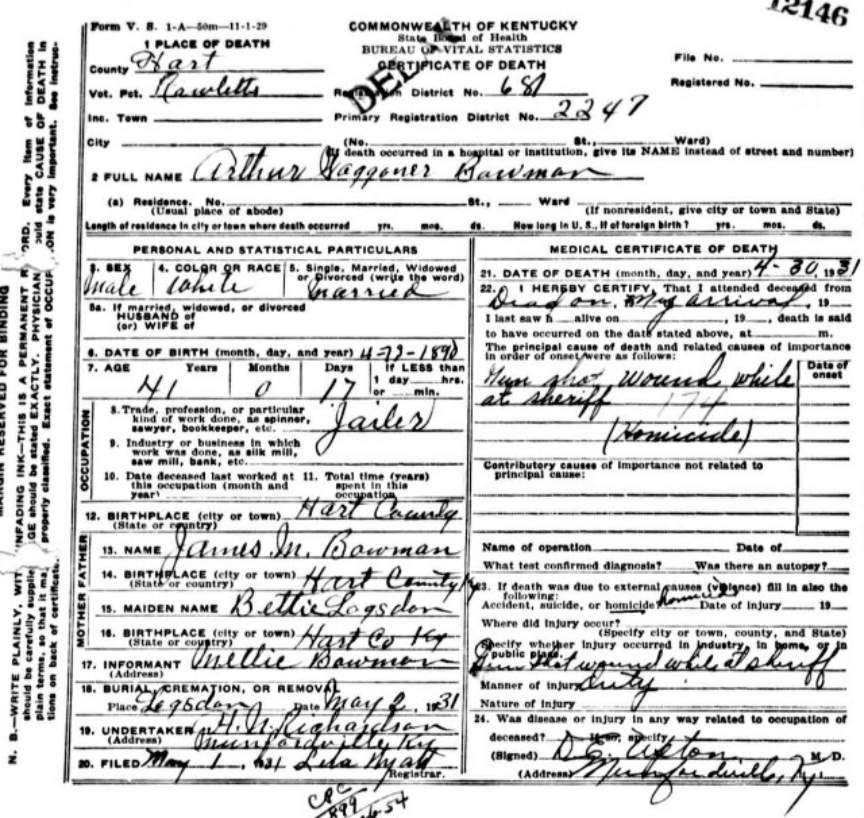 12146
Form V. S. 1-A—50m—11-1-29
COMMONWEALTH OF KENTUCKY
State Board of Health
BUREAU OF VITAL STATISTICS
CERTIFICATE OF DEATH
1 PLACE OF DEATH
County Hart
Vot. Pct. Rowletts
Registration District No. 681
Inc. Town
Primary Registration District No. 2247
File No.
Registered No.
City (No. St., Ward)
(If death occurred in a hospital or institution, give its NAME instead of street and number)
2 FULL NAME Arthur Waggoner Bowman
(a) Residence. No. St., Ward
(Usual place of abode) (If nonresident, give city or town and State)
Length of residence in city or town where death occurred yrs. mos. ds. How long in U. S., if of foreign birth? yrs. mos. ds.
PERSONAL AND STATISTICAL PARTICULARS
3. SEX 4. COLOR OR RACE 5. Single, Married, Widowed
or Divorced (write the word)
Male White Married
5a. If married, widowed, or divorced
HUSBAND of
(or) WIFE of
6. DATE OF BIRTH (month, day, and year)
7. AGE Years Months Days If LESS than
1 day hrs.
or min.
41 0 17
OCCUPATION
8. Trade, profession, or particular
kind of work done, as spinner,
sawyer, bookkeeper, etc. Jailer
9. Industry or business in which
work was done, as silk mill,
saw mill, bank, etc.
10. Date deceased last worked at
this occupation (month and
year)
11. Total time (years)
spent in this
occupation
12. BIRTHPLACE (city or town) Hart County
(State or country)
FATHER
13. NAME James M. Bowman
14. BIRTHPLACE (city or town) Hart County Ky
(State or country)
MOTHER
15. MAIDEN NAME Bettie Logsdon
16. BIRTHPLACE (city or town) Hart Co Ky
(State or country)
17. INFORMANT Nellie Bowman
(Address)
18. BURIAL, CREMATION, OR REMOVAL
Place Logsdon Date May 2, 1931
19. UNDERTAKER H. N. Richardson
(Address) Munfordville Ky
20. FILED May 1, 1931 Lela Wyatt
Registrar.
MEDICAL CERTIFICATE OF DEATH
21. DATE OF DEATH (month, day, and year) 4-30, 1931
22. I HEREBY CERTIFY, That I attended deceased from
Dead on My arrival, 19
I last saw h alive on , 19 , death is said
to have occurred on the date stated above, at m.
The principal cause of death and related causes of importance
in order of onset were as follows:
Date of
onset
Gun shot wound while
at sheriff 174
(Homicide)
Contributory causes of importance not related to
principal cause:
Name of operation Date of
What test confirmed diagnosis? Was there an autopsy?
23. If death was due to external causes (violence) fill in also the
following:
Accident, suicide, or homicide? Homicide Date of injury 19
Where did injury occur?
(Specify city or town, county, and State)
Specify whether injury occurred in industry, in home, or in
public place.
Gun shot wound while at sheriff
Manner of injury Duty
Nature of injury
24. Was disease or injury in any way related to occupation of
deceased? If so, specify
(Signed) D.C. M. D.
(Address) Munfordville, Ky.
MARGIN RESERVED FOR BINDING